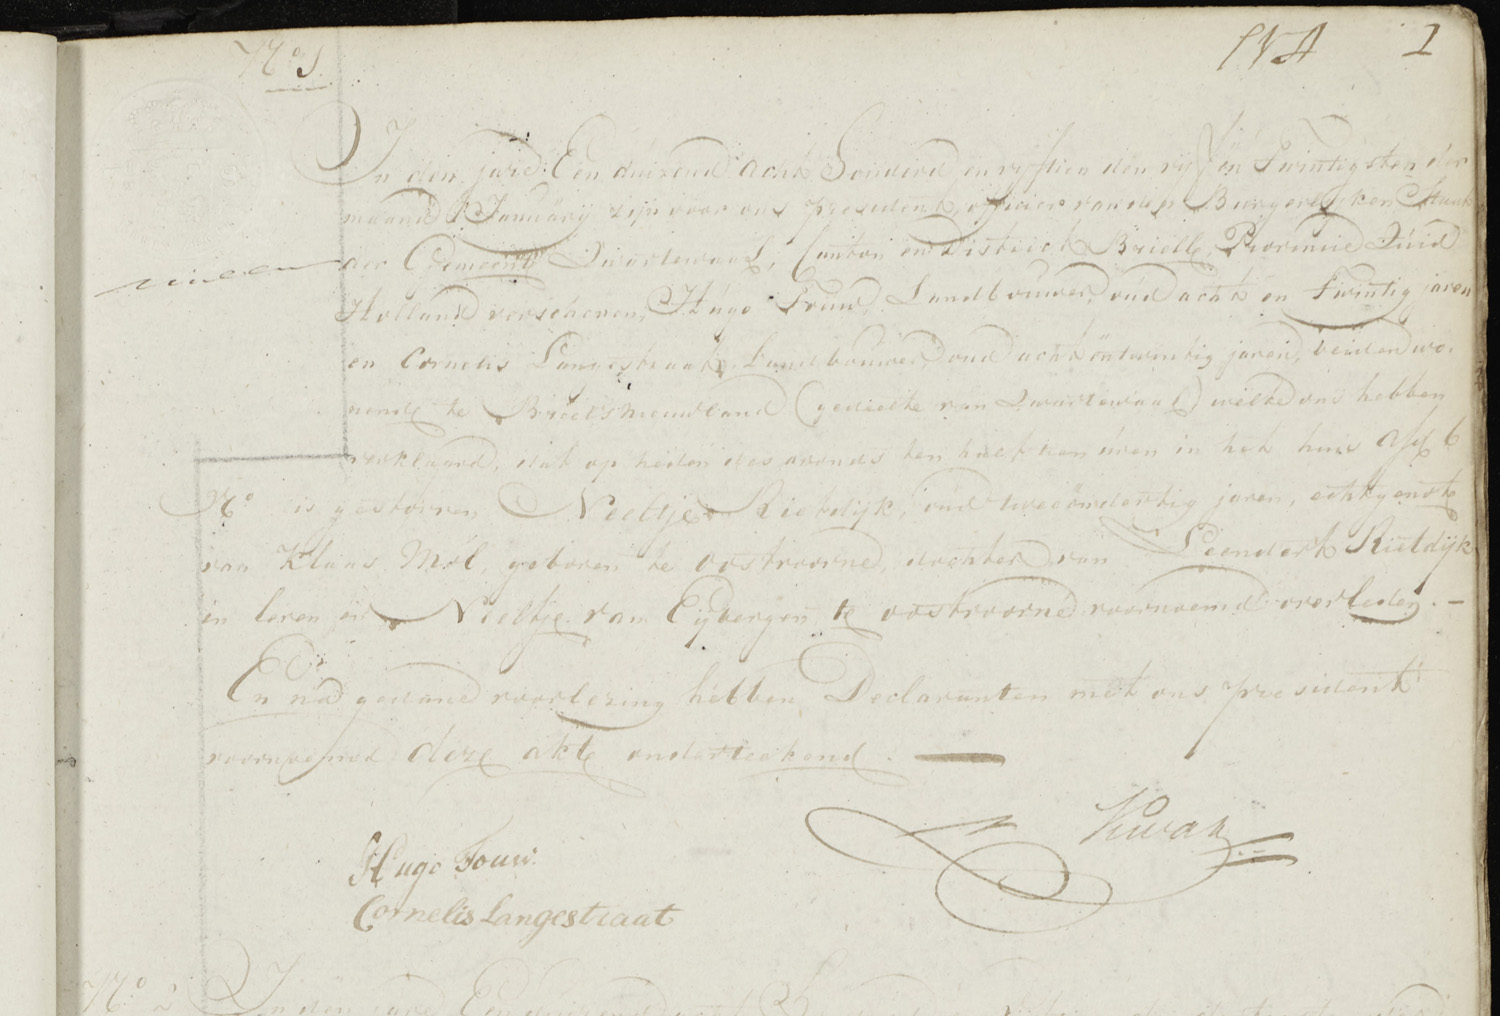 N.o 1
1
In den jare Een duizend acht Honderd en vyftien den vyf en Twintigsten der
maand January zijn voor ons president, officier van den Burgerlyken Staat
der Gemeente Zwartewaal, Canton en District Brielle, Provincie Zuid
Holland verschenen, Hugo Fouw Landbouwer, oud acht en twintig jaren
en Cornelis Langestraat, Landbouwer, oud acht en twintig jaren, beiden wo-
nende te Brielsnieuwland (gedeelte van Zwartewaal) welke ons hebben
verklaard, dat op heden des avonds ten half een uren in het huis 6
N.o is gestorven Neeltje Rietdijk, oud twee en dertig jaren, echtgenote
van Klaas Mol, geboren te oostvoorne, dochter van Leendert Rietdijk
in leven en Neeltje van Eijbergen te oostvoorne voornoemd overleden. —
En na gedane voorlezing hebben Declaranten met ons president
voornoemd deze akte onderteekend. —
Kwak
Hugo Fouw
Cornelis Langestraat
N.o 2 In den jare Een duizend acht